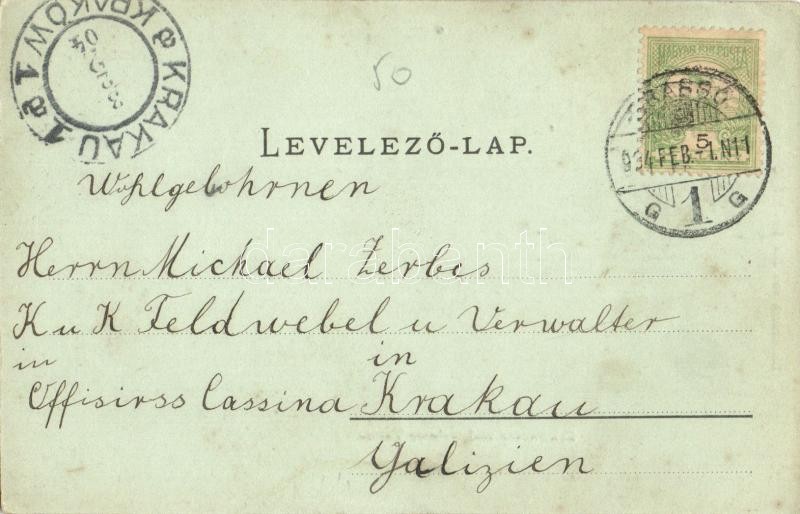 KRAKAU 1 KRAKÓW 1
04
50
MAGYAR KIR. POSTA
5
BRASSÓ
904 FEB. 1. N11
G 1 G
LEVELEZŐ-LAP.
Wohlgebohrnen
Herrn Michael Zerbes
K u K Feldwebel u Verwalter
in in
Offisirss Cassina Krakau
Galizien
darabanth